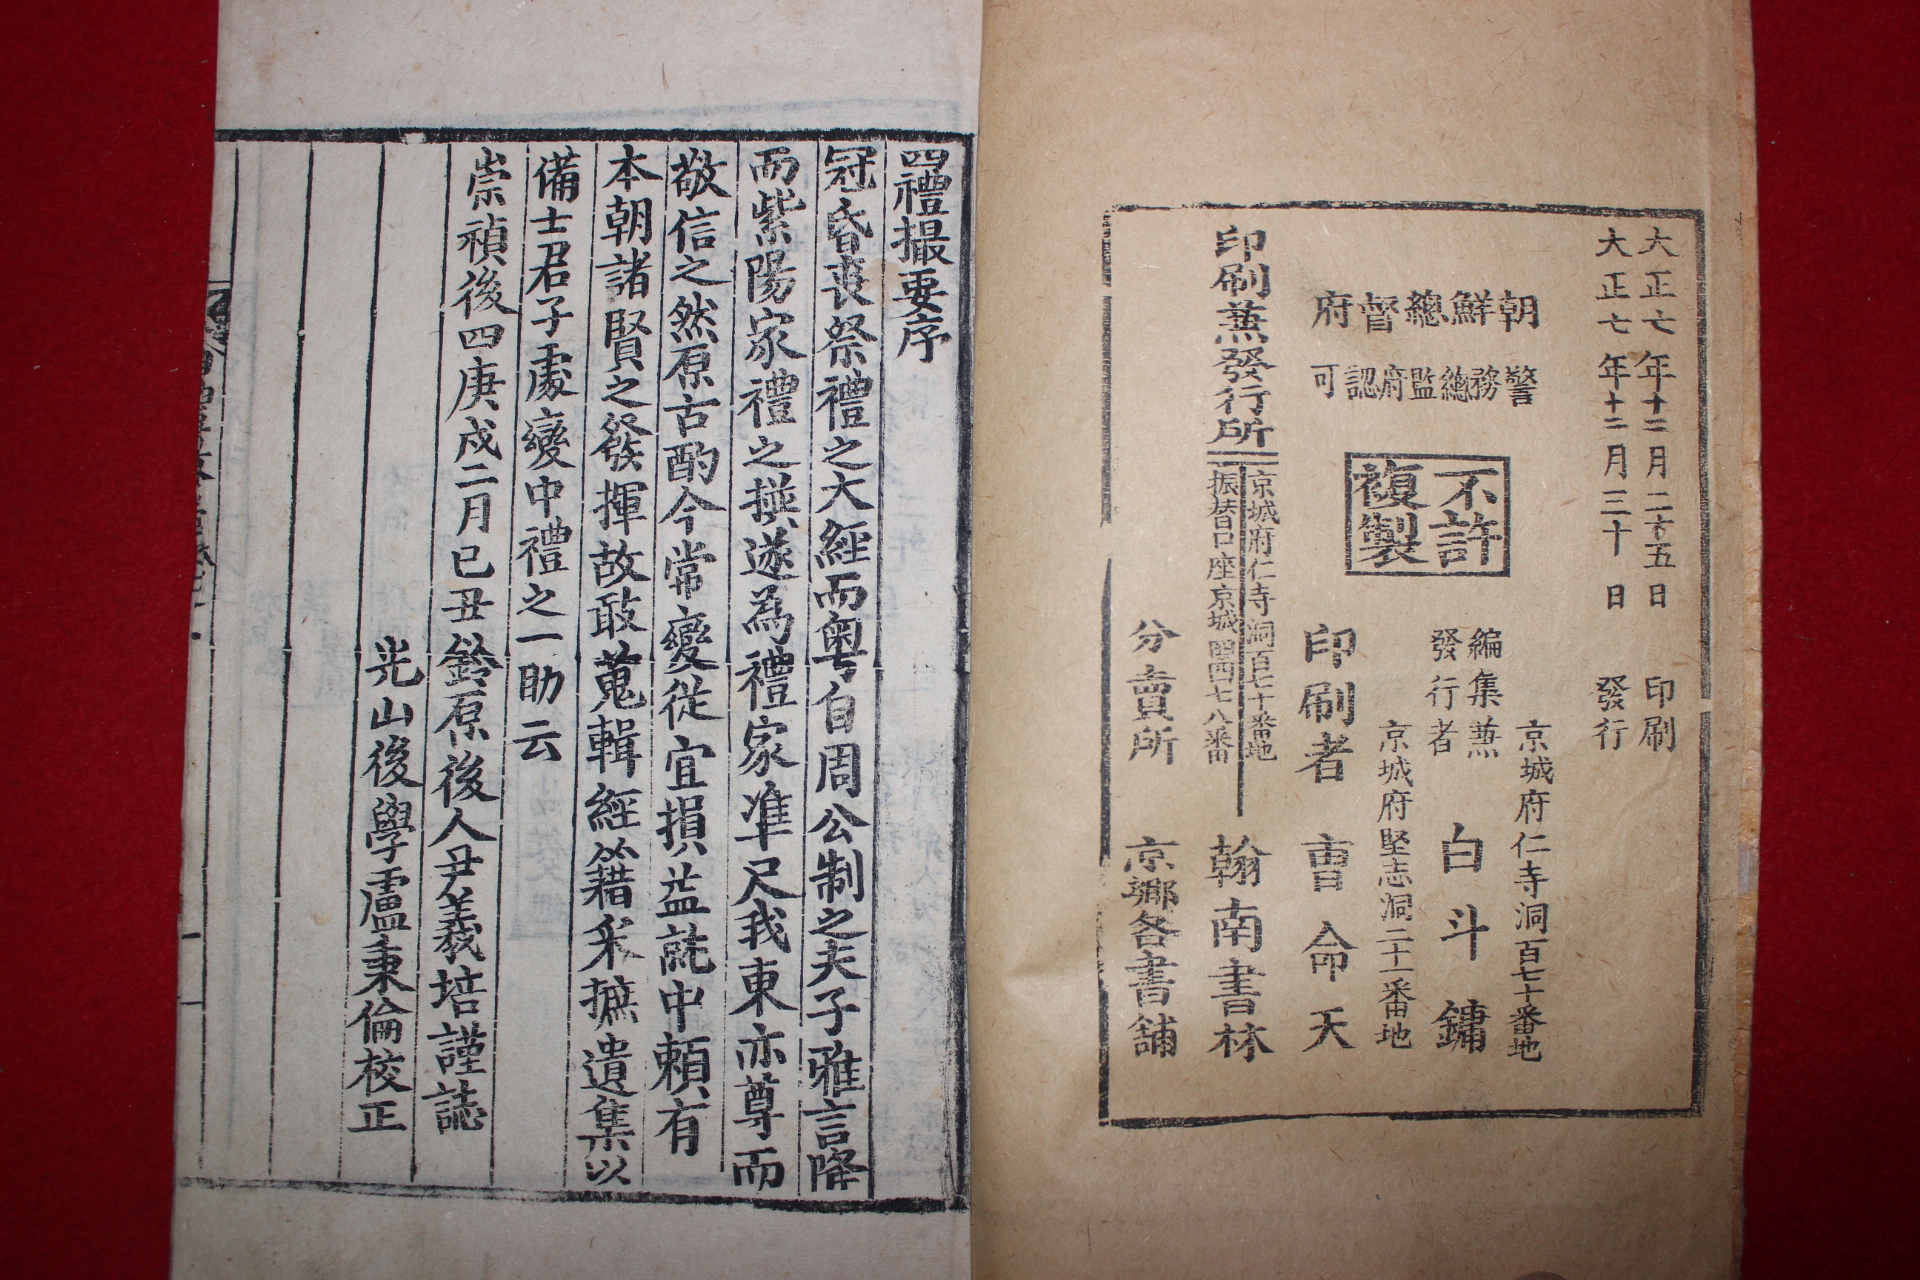 大正七年十二月二十五日 印刷
大正七年十二月三十日 發行
朝鮮總督府
警務總監府認可
不許
複製
京城府仁寺洞百七十番地
編集兼
發行者
白斗鏞
京城府堅志洞二十一番地
印刷者 曺命天
印刷兼發行所
京城府仁寺洞百七十番地
振替口座京城四四七八番
翰南書林
分賣所 京鄉各書舖
四禮撮要序
冠昏喪祭禮之大經而粤自周公制之夫子雅言降
而紫陽家禮之撰遂為禮家準尺我東亦尊而
敬信之然原古酌今常變從宜損益就中頼有
本朝諸賢之發揮故敢蒐輯經籍采摭遺集以
備士君子處變中禮之一助云
崇禎後四庚戌二月己丑鈴原後人尹羲培謹誌
光山後學盧秉倫校正